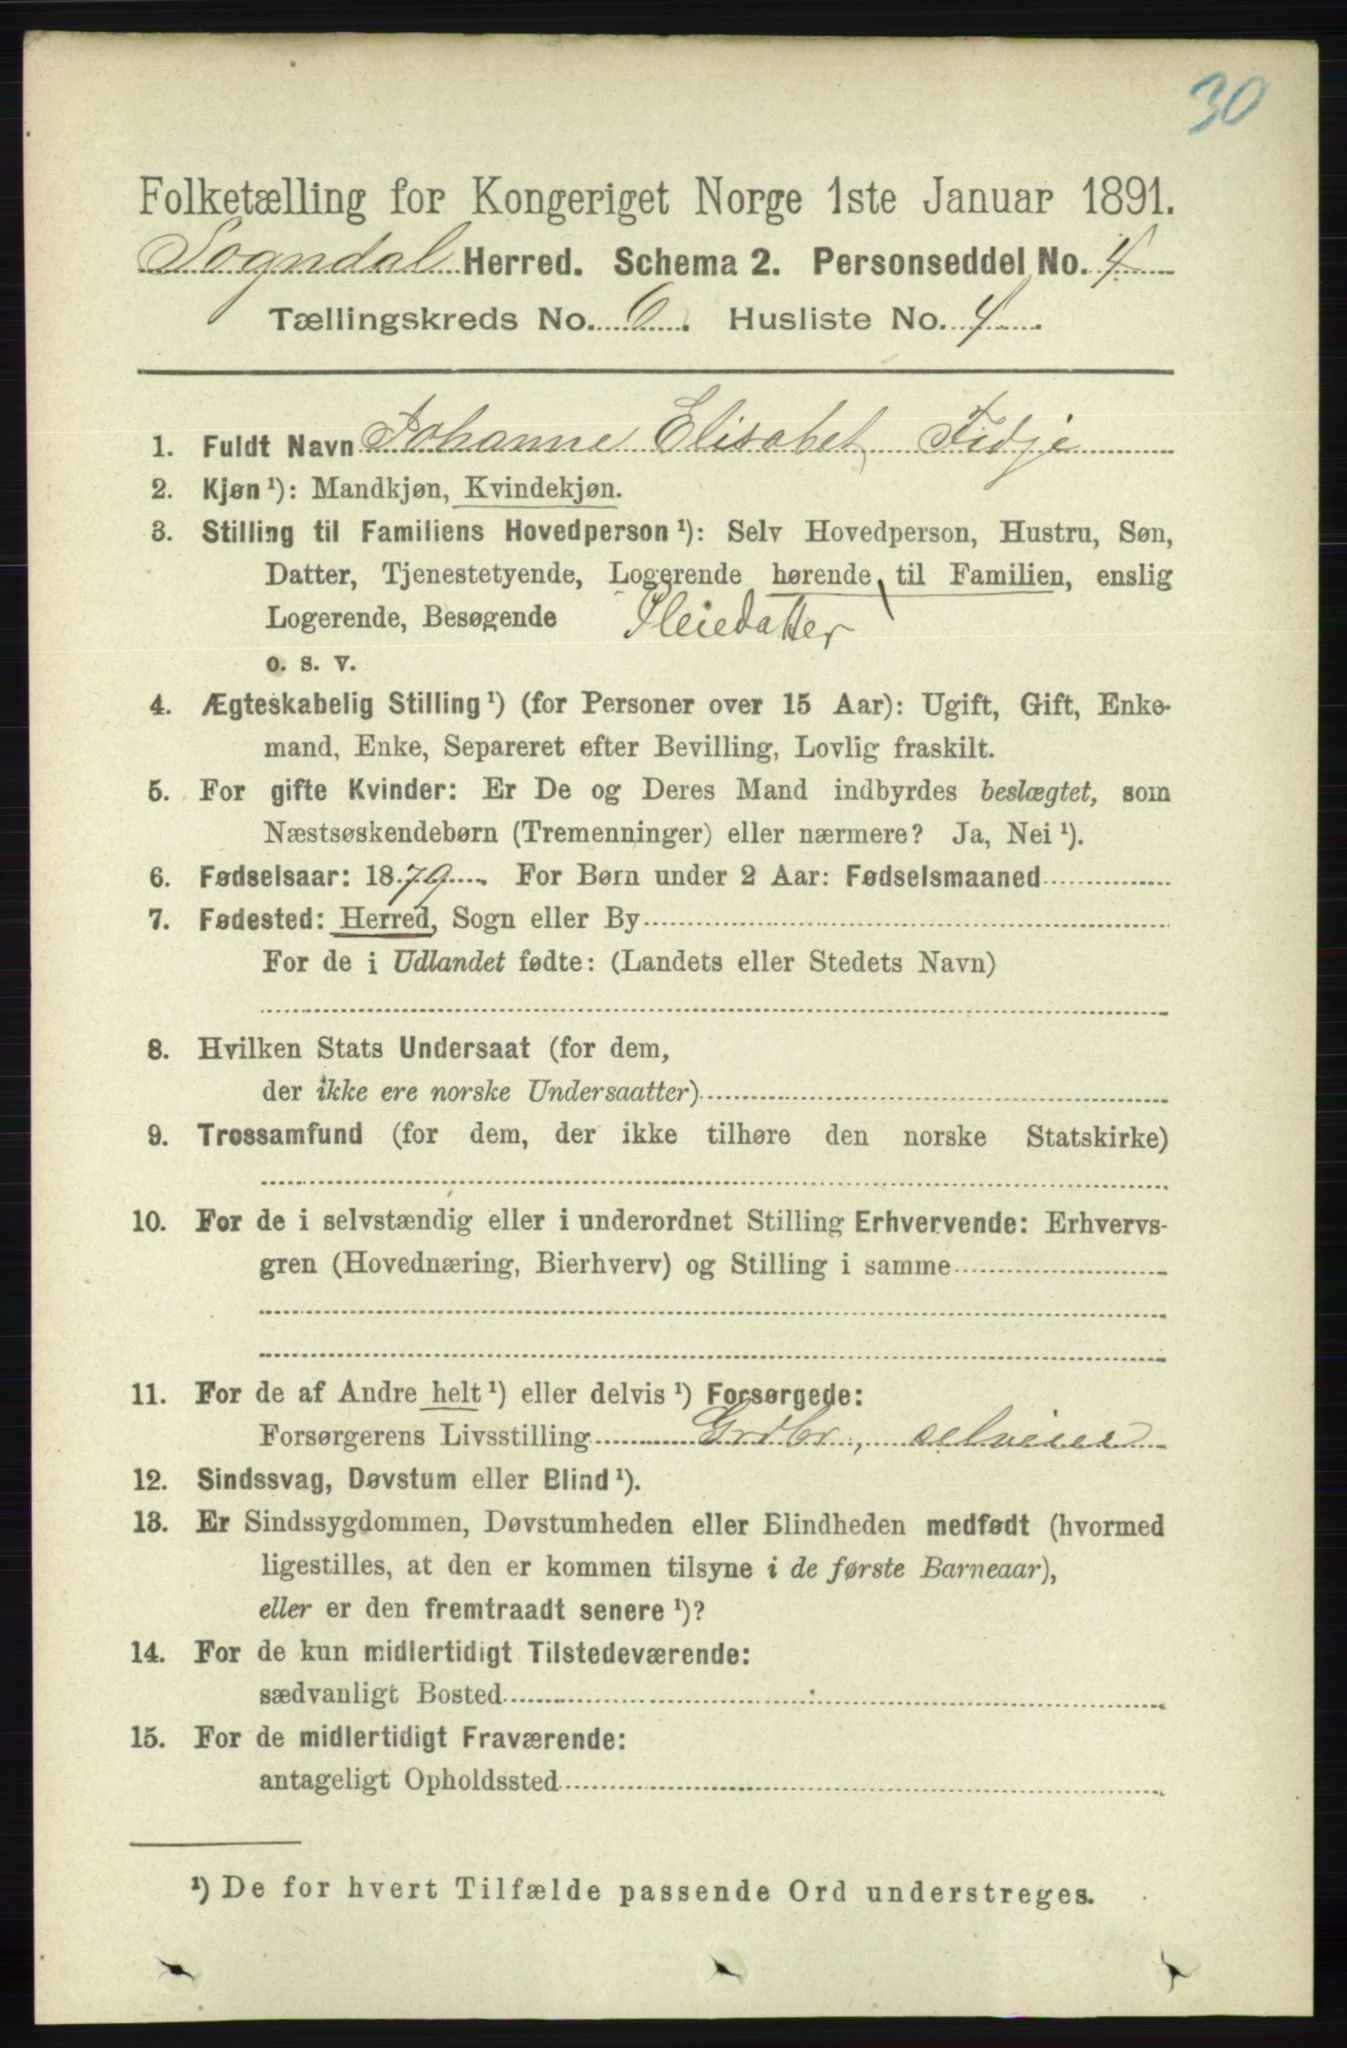 30
Folketælling for Kongeriget Norge 1ste Januar 1891.
Sogndal Herred. Schema 2. Personseddel No. 4
Tællingskreds No. 6. Husliste No. 4.
1. Fuldt Navn Johanne Elisabet Fidje
2. Kjøn ¹): Mandkjøn, Kvindekjøn.
3. Stilling til Familiens Hovedperson ¹): Selv Hovedperson, Hustru, Søn,
Datter, Tjenestetyende, Logerende hørende til Familien, enslig
Logerende, Besøgende Pleiedatter
o. s. v.
4. Ægteskabelig Stilling ¹) (for Personer over 15 Aar): Ugift, Gift, Enke-
mand, Enke, Separeret efter Bevilling, Lovlig fraskilt.
5. For gifte Kvinder: Er De og Deres Mand indbyrdes beslægtet, som
Næstsøskendebørn (Tremenninger) eller nærmere? Ja, Nei ¹).
6. Fødselsaar: 1879. For Børn under 2 Aar: Fødselsmaaned
7. Fødested: Herred, Sogn eller By
For de i Udlandet fødte: (Landets eller Stedets Navn)
8. Hvilken Stats Undersaat (for dem,
der ikke ere norske Undersaatter)
9. Trossamfund (for dem, der ikke tilhøre den norske Statskirke)
10. For de i selvstændig eller i underordnet Stilling Erhvervende: Erhvervs-
gren (Hovednæring, Bierhverv) og Stilling i samme
11. For de af Andre helt ¹) eller delvis ¹) Forsørgede:
Forsørgerens Livsstilling Grdbr, selveier
12. Sindssvag, Døvstum eller Blind ¹).
13. Er Sindssygdommen, Døvstumheden eller Blindheden medfødt (hvormed
ligestilles, at den er kommen tilsyne i de første Barneaar),
eller er den fremtraadt senere ¹)?
14. For de kun midlertidigt Tilstedeværende:
sædvanligt Bosted
15. For de midlertidigt Fraværende:
antageligt Opholdssted
¹) De for hvert Tilfælde passende Ord understreges.